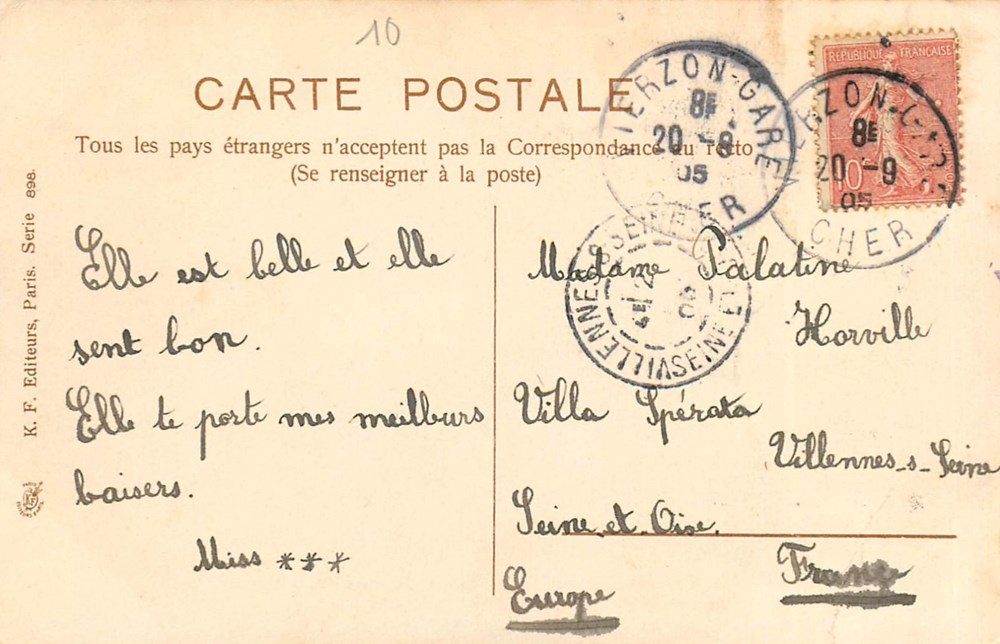 10
CARTE POSTALE
Tous les pays étrangers n'acceptent pas la Correspondance au recto
(Se renseigner à la poste)
K. F. Editeurs, Paris. Serie 898.
RÉPUBLIQUE FRANÇAISE
10
VIERZON-GARE
8E
20 -9
05
CHER
VIERZON-GARE
8E
20 -9
05
CHER
VILLENNES-S-SEINE
SEINE ET
Elle est belle et elle
sent bon.
Elle te porte mes meilleurs
baisers.
Miss ***
Madame Palatine
Horville
Villa Spérata
Villennes-s-Seine
Seine et Oise.
France
Europe